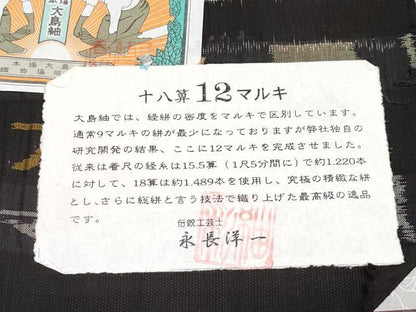 本場
大島紬
本場大島
織物協同
十八算 12マルキ
大島紬では、経絣の密度をマルキで区別しています。
通常9マルキの絣が最少になっておりますが弊社独自の
研究開発の結果、ここに12マルキを完成させました。
従来は着尺の経糸は15.5算（1尺5分間に）で約1.220本
に対して、18算は約1.489本を使用し、究極の精緻な絣
とし、さらに総絣と言う技法で織り上げた最高級の逸品
です。
伝統工芸士
永長洋一